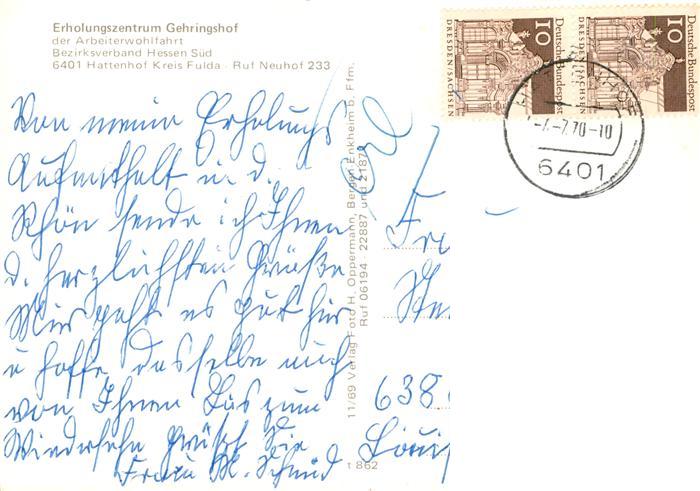 Erholungszentrum Gehringshof
der Arbeiterwohlfahrt
Bezirksverband Hessen Süd
6401 Hattenhof Kreis Fulda · Ruf Neuhof 233
Von meinem Erholungs
Aufenthalt i. d.
Rhön sende ich Ihnen
d. herzlichsten Grüße
Mir geht es gut hier
u hoffe dasselbe auch
von Ihnen Bis zum
Wiedersehn grüßt Sie
Frau M. Schmid
11/69 Verlag Foto H. Oppermann, Bergen Enkheim b. Ffm.
Ruf 06194 - 22887 und 21870
t 862
10 Deutsche Bundespost
DRESDEN/SACHSEN
10 Deutsche Bundespost
DRESDEN/SACHSEN
-7.70-10
6401
Fr
638